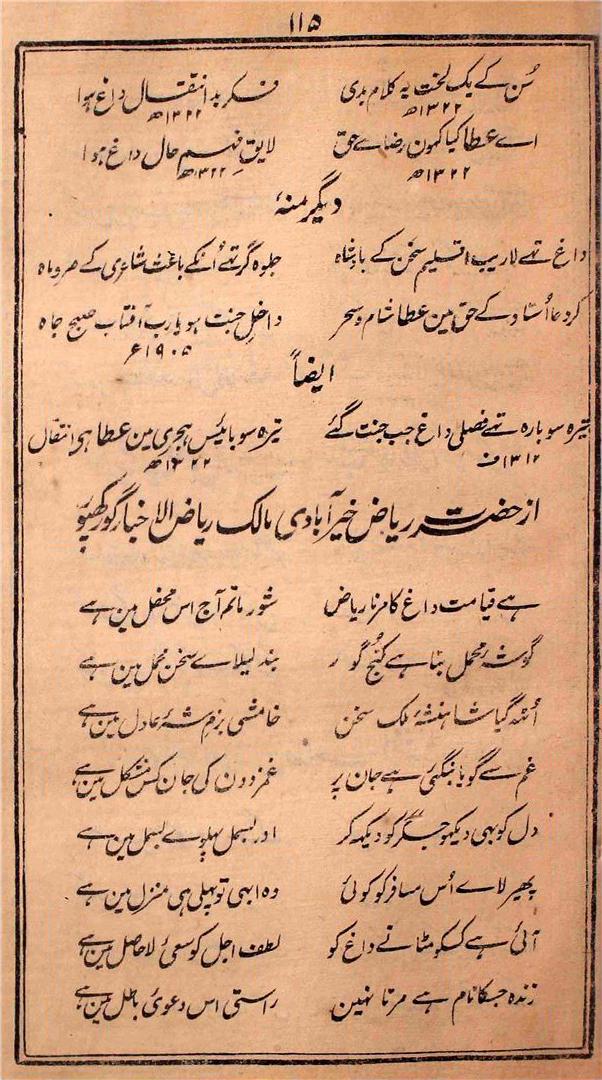 ۱۱۵
سُن کے یک لخت یہ کلام بدی فکر بد انتقال داغ ہوا
۱۳۲۲ھ ۱۳۲۲ھ
اے عطا کیا کہون رضاے حق لایق فہم حال داغ ہوا
۱۳۲۲ھ ۱۳۲۲ھ
دیگر منہ
داغ تھے لاریب اقلیم سخن کے بادشاہ جلوہ گر تھے اُنکے باعث شاعری کے مہر و ماہ
کر دعا اُستاد کے حق مین عطا شام و سحر داخل جنت ہو یارب آفتاب صبح جاہ
۱۹۰۵ء
ایضاً
تیرہ سو بارہ تھے فصلی داغ جب جنت گئے تیرہ سو بائیس ہجری مین عطا ہی انتقال
۱۳۱۲ف ۱۳۲۲ھ
از حضرت ریاض خیرآبادی مالک ریاض الاخبار گورکھپور
ہے قیامت داغ کا مرنا ریاض شور ماتم آج اس محفل مین ہے
گوشہ محمل بنا ہے کنج گور بند لیلاے سخن محمل مین ہے
اُٹھ گیا شاہنشہ ملک سخن خامشی بزم شہ عادل مین ہے
غم سے گویا بنگئی ہے جان پر غمزدون کی جان کس مشکل مین ہے
دل کو بھی دیکھو جگر کو دیکھ کر اور بسمل پہلوے بسمل مین ہے
پھیر لاے اُس مسافر کو کوئی وہ ابھی تو پہلی ہی منزل مین ہے
آئی ہے کسکو مٹانے داغ کو لطف اجل کو سعیٔ لاحاصل مین ہے
زندہ جسکا نام ہے مرتا نہین راستی اس دعویٔ باطل مین ہے